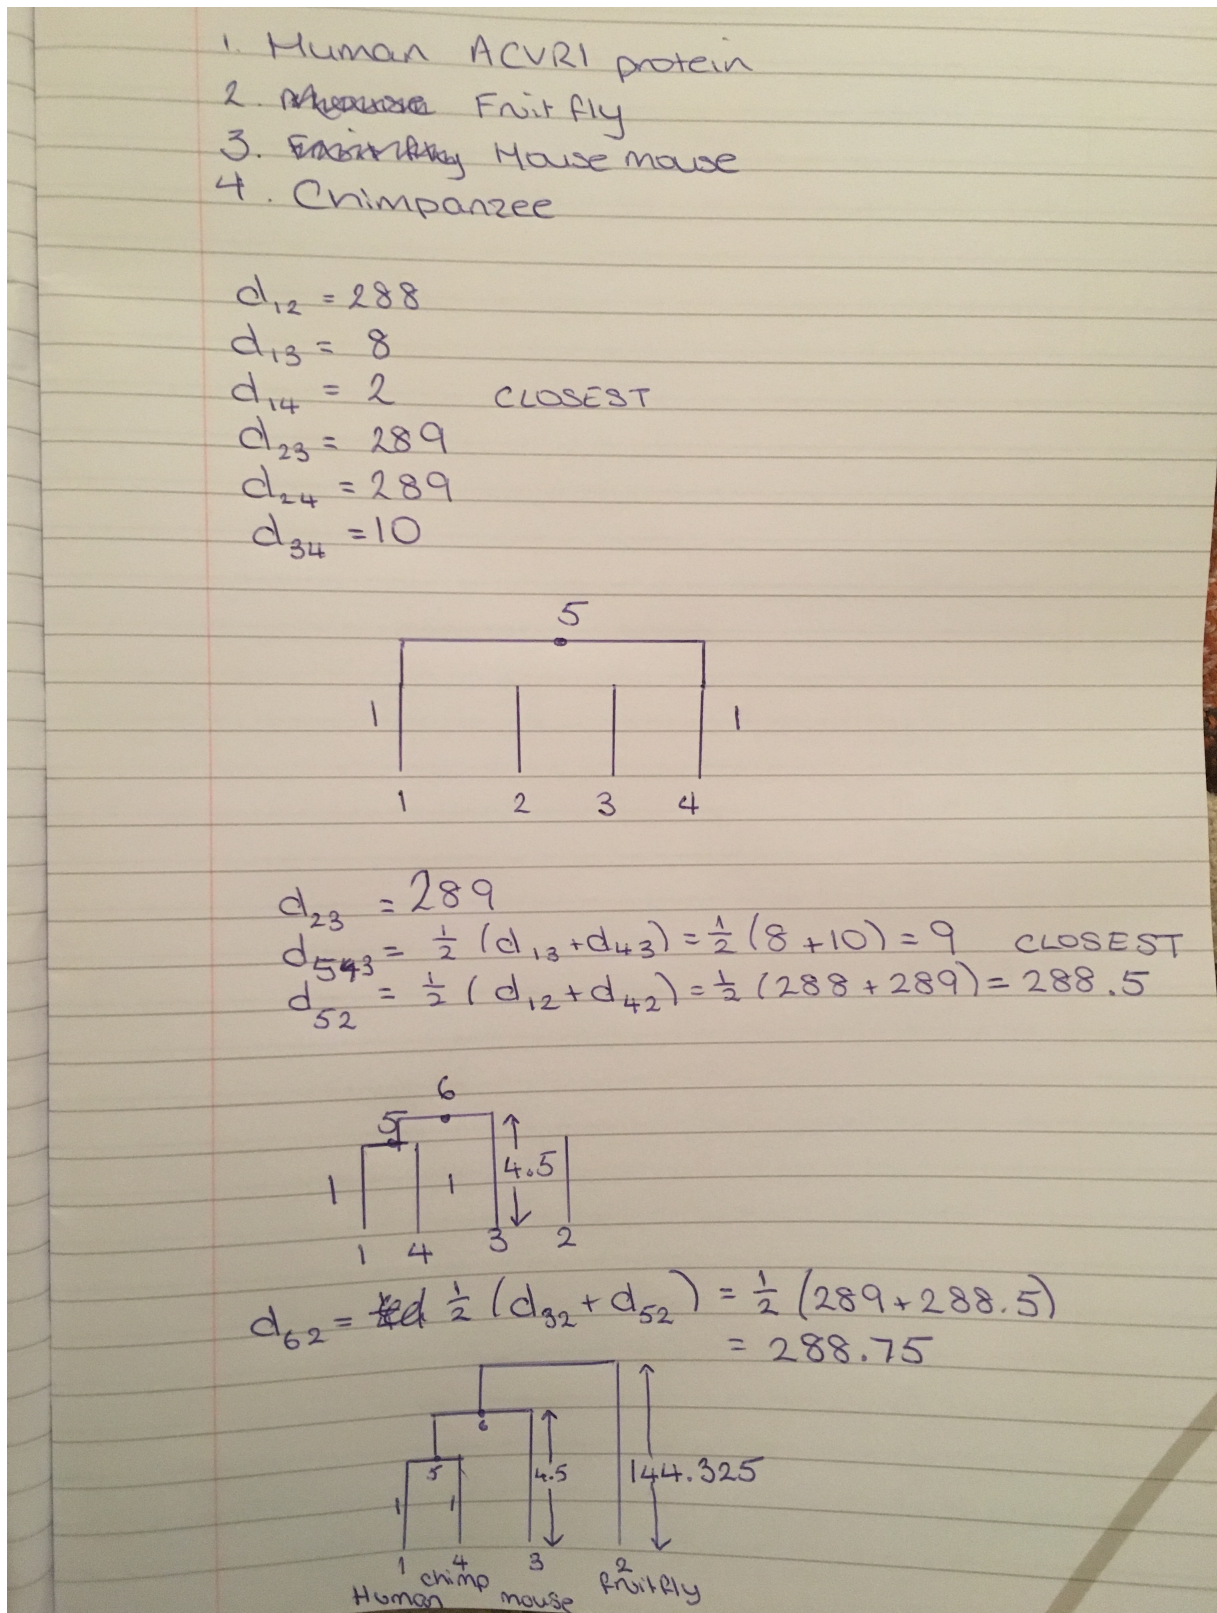 1. Human ACVR1 protein
2. Fruit fly
3. Mouse mouse
4. Chimpanzee
d₁₂ = 288
d₁₃ = 8
d₁₄ = 2 CLOSEST
d₂₃ = 289
d₂₄ = 289
d₃₄ = 10
5
1 1
1 2 3 4
d₂₃ = 289
d₅₃ = ½ (d₁₃ + d₄₃) = ½ (8 + 10) = 9 CLOSEST
d₅₂ = ½ (d₁₂ + d₄₂) = ½ (288 + 289) = 288.5
6
5
1 1 4.5
1 4 3 2
d₆₂ = ½ (d₃₂ + d₅₂) = ½ (289 + 288.5)
= 288.75
6
5 4.5 144.325
1 1
1 4 3 2
Human chimp mouse fruitfly